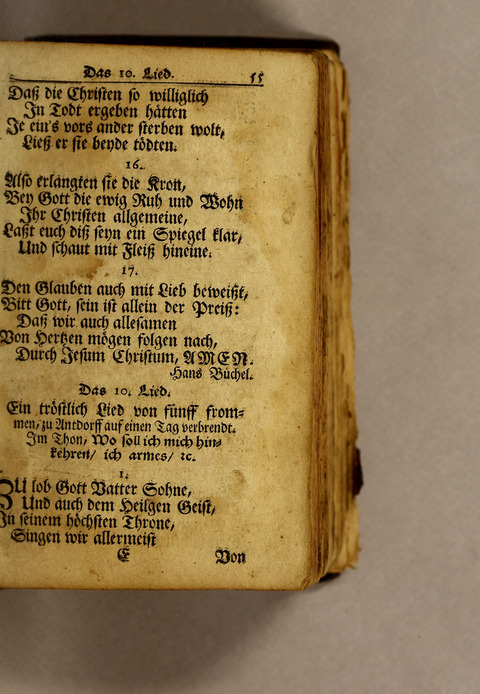 Das 10. Lied. 55
Daß die Christen so williglich
In Todt ergeben hätten
Je ein's vors ander sterben wolt,
Ließ er sie beyde tödten.
16.
Also erlangten sie die Kron,
Bey Gott die ewig Ruh und Wohn
Ihr Christen allgemeine,
Laßt euch diß seyn ein Spiegel klar,
Und schaut mit Fleiß hineine.
17.
Den Glauben auch mit Lieb beweißt,
Bitt Gott, sein ist allein der Preiß:
Daß wir auch allesamen
Von Hertzen mögen folgen nach,
Durch Jesum Christum, AMEN.
Hans Büchel.
Das 10. Lied.
Ein tröstlich Lied von fünff from-
men, zu Antdorff auf einen Tag verbrendt.
Im Thon, Wo soll ich mich hin-
kehren/ ich armes/ ꝛc.
1.
ZU lob Gott Vatter Sohne,
Und auch dem Heilgen Geist,
In seinem höchsten Throne,
Singen wir allermeist
E Von